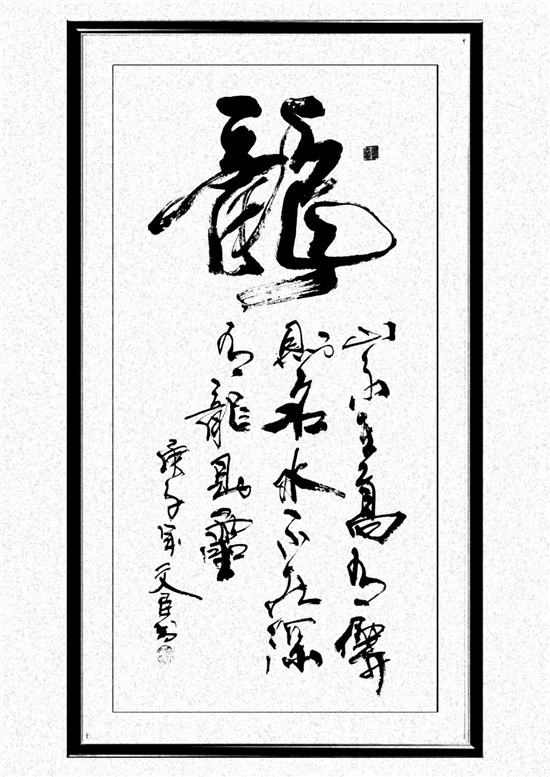 龍
山不在高有僊
則名水不在深
有龍則靈
庚子
文
書